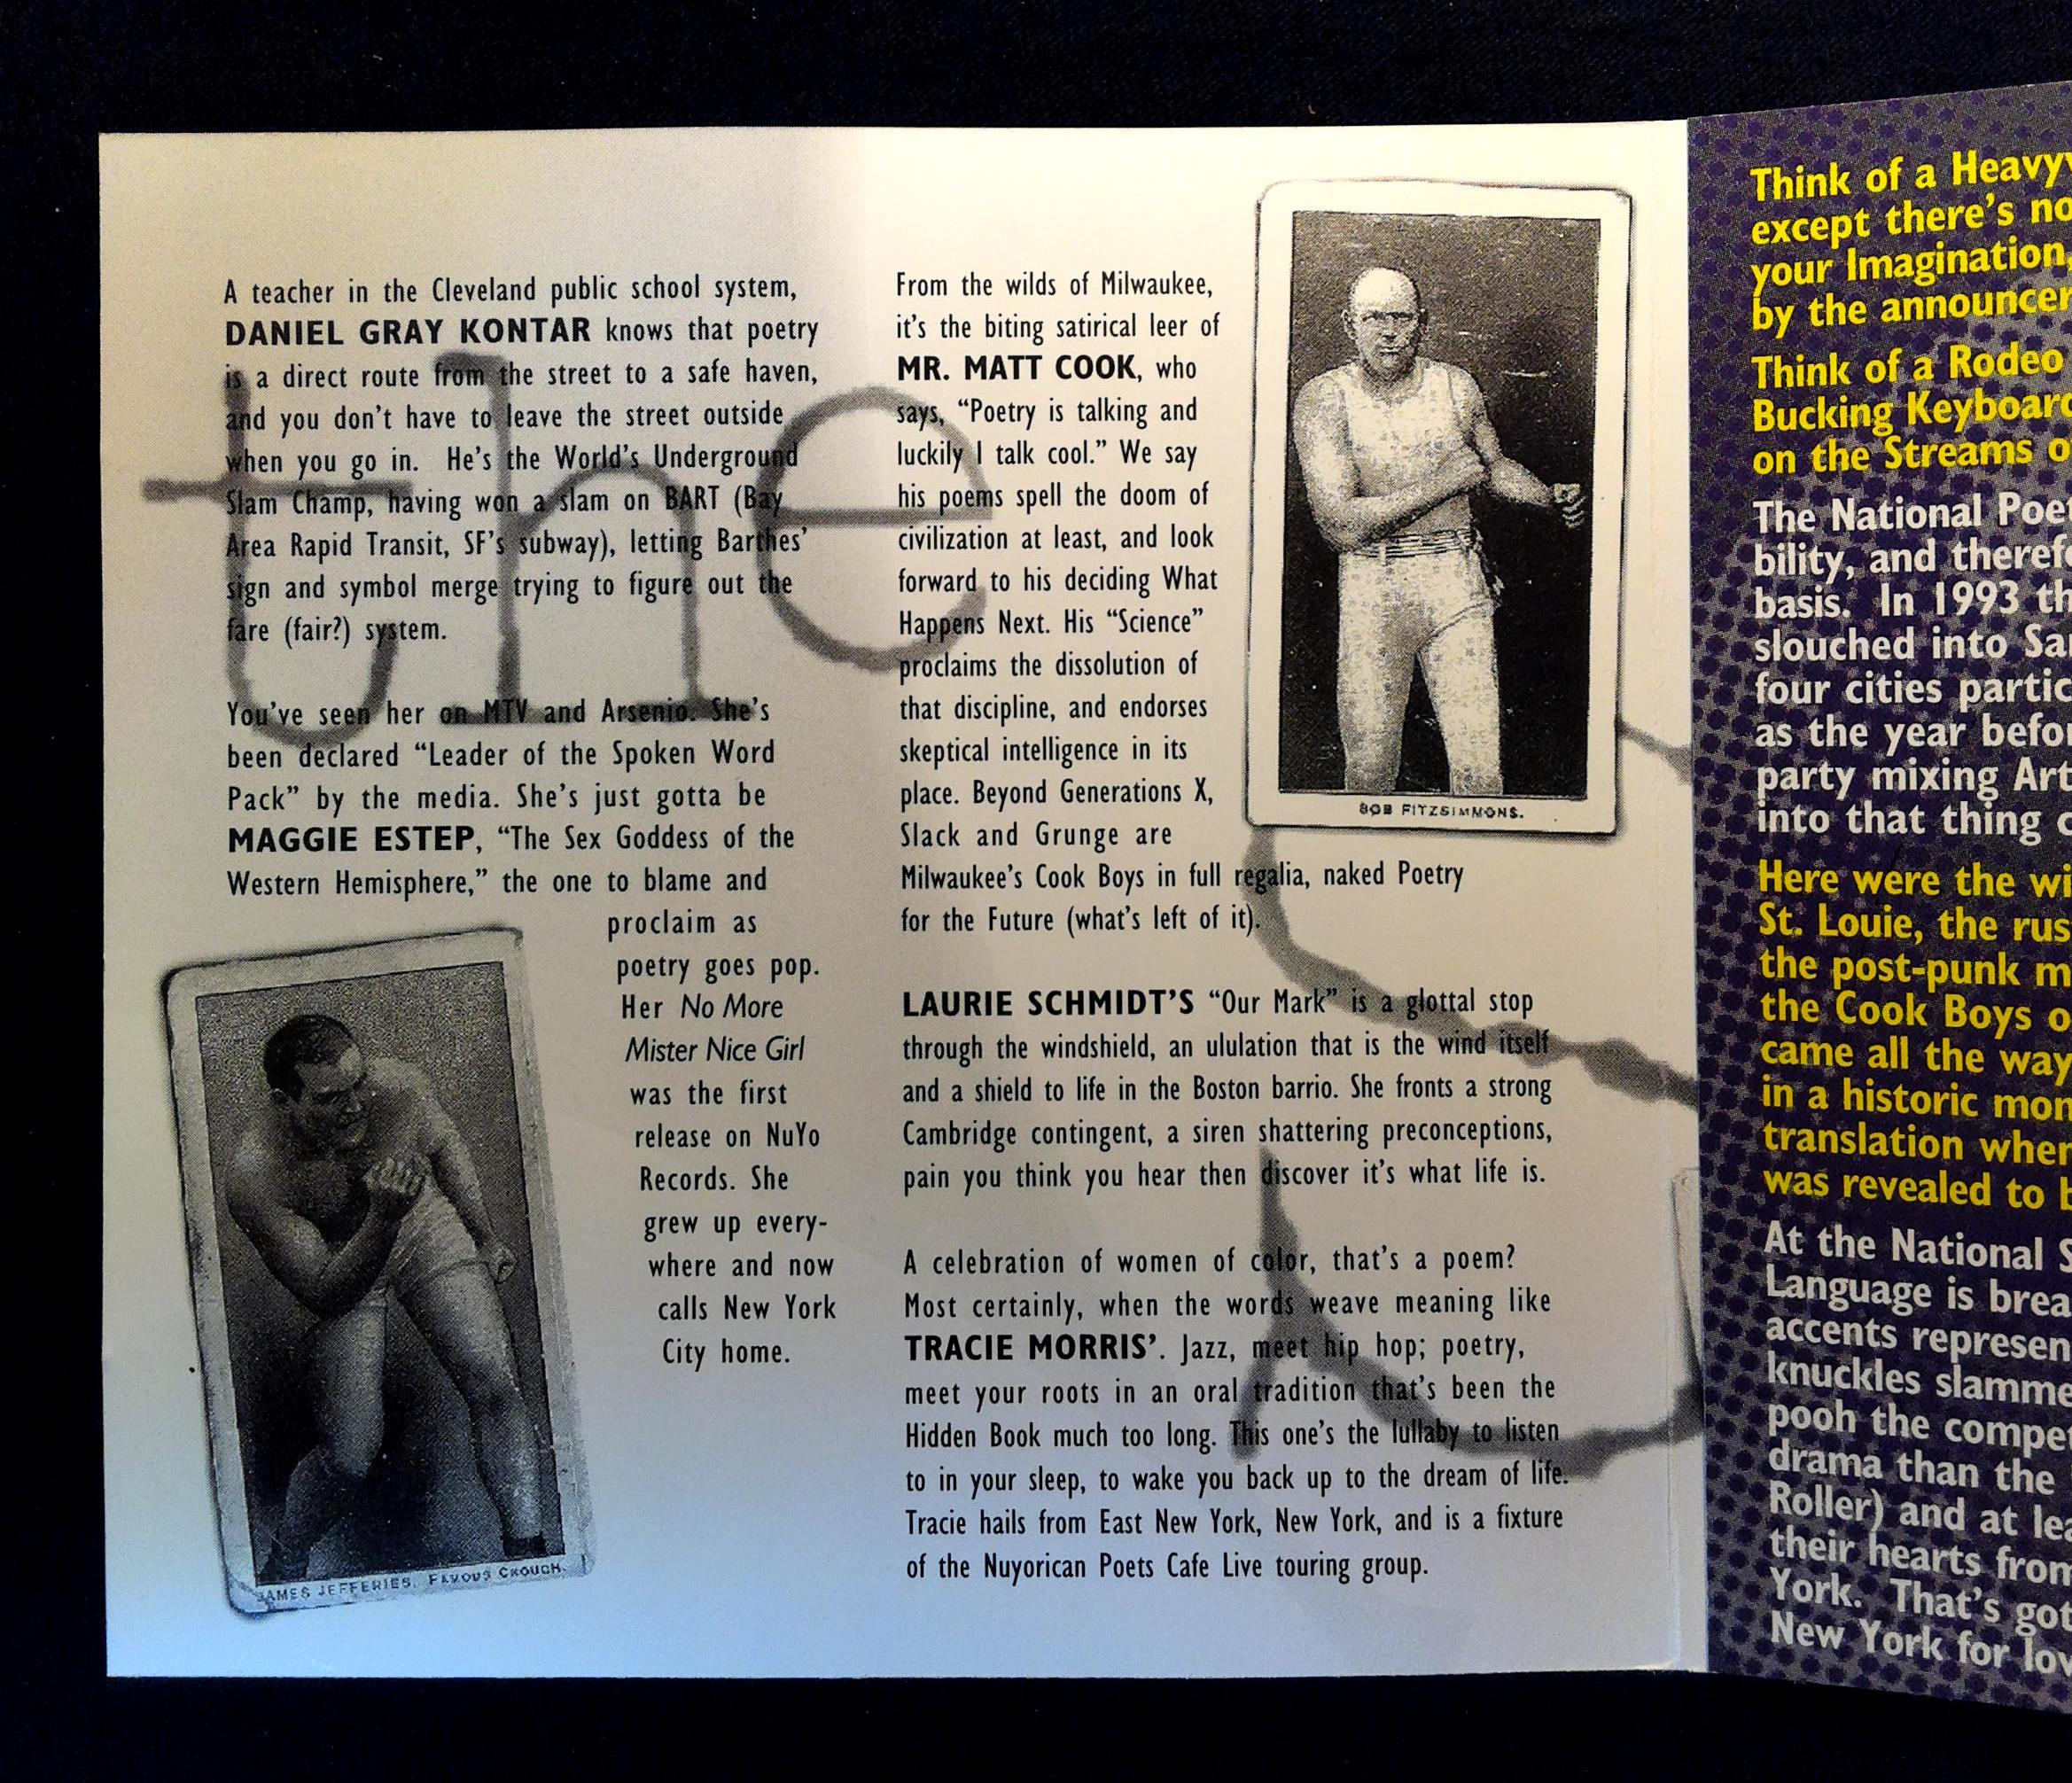 A teacher in the Cleveland public school system,
DANIEL GRAY KONTAR knows that poetry
is a direct route from the street to a safe haven,
and you don't have to leave the street outside
when you go in. He's the World's Underground
Slam Champ, having won a slam on BART (Bay
Area Rapid Transit, SF's subway), letting Barthes'
sign and symbol merge trying to figure out the
fare (fair?) system.
You've seen her on MTV and Arsenio. She's
been declared “Leader of the Spoken Word
Pack” by the media. She's just gotta be
MAGGIE ESTEP, “The Sex Goddess of the
Western Hemisphere,” the one to blame and
proclaim as
poetry goes pop.
Her No More
Mister Nice Girl
was the first
release on NuYo
Records. She
grew up every-
where and now
calls New York
City home.
JAMES JEFFERIES. FAMOUS CROUCH.
the
From the wilds of Milwaukee,
it's the biting satirical leer of
MR. MATT COOK, who
says, “Poetry is talking and
luckily I talk cool.” We say
his poems spell the doom of
civilization at least, and look
forward to his deciding What
Happens Next. His “Science”
proclaims the dissolution of
that discipline, and endorses
skeptical intelligence in its
place. Beyond Generations X,
Slack and Grunge are
Milwaukee's Cook Boys in full regalia, naked Poetry
for the Future (what's left of it).
BOB FITZSIMMONS.
LAURIE SCHMIDT'S “Our Mark” is a glottal stop
through the windshield, an ululation that is the wind itself
and a shield to life in the Boston barrio. She fronts a strong
Cambridge contingent, a siren shattering preconceptions,
pain you think you hear then discover it's what life is.
A celebration of women of color, that's a poem?
Most certainly, when the words weave meaning like
TRACIE MORRIS'. Jazz, meet hip hop; poetry,
meet your roots in an oral tradition that's been the
Hidden Book much too long. This one's the lullaby to listen
to in your sleep, to wake you back up to the dream of life.
Tracie hails from East New York, New York, and is a fixture
of the Nuyorican Poets Cafe Live touring group.
Think of a
except there's
your Imagination,
by the announcer
Think of a Rodeo
Bucking
on the Streams
The National
bility, and
basis. In 1993
slouched into
four cities
as the year
party mixing
into that thing
Here were the
St. Louie, the
the post-punk
the Cook Boys
came all the way
in a historic
translation
was revealed to
At the National
Language is
accents
knuckles
pooh the
drama than the
Roller) and at
their hearts from
York. That's
New York for